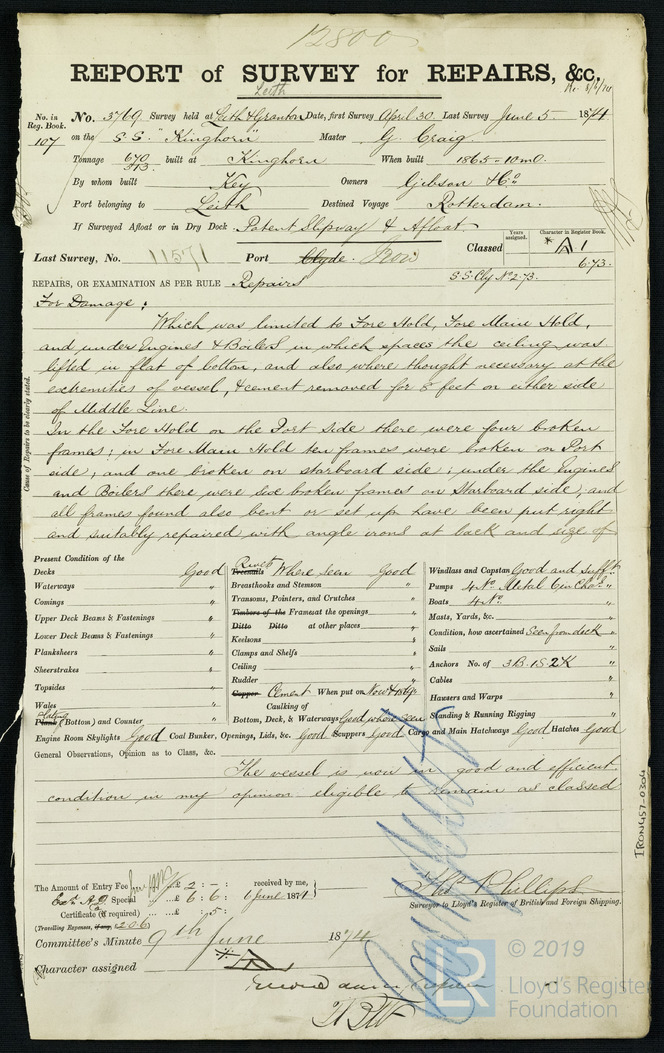 12800
REPORT of SURVEY for REPAIRS, &c.
Leith
No. in Reg. Book. No. 3769 Survey held at Leith & Granton Date, first Survey April 30 Last Survey June 5 1874
107 on the S.S. "Kinghorn" Master G. Craig
Tonnage 670 built at Kinghorn When built 1865-10mo.
313.
By whom built Key Owners Gibson & Co
Port belonging to Leith Destined Voyage Rotterdam.
If Surveyed Afloat or in Dry Dock Patent Slipway & Afloat
Years assigned. Character in Register Book.
Last Survey, No. 11571 Port Clyde. Iron Classed * A 1
6.73.
S.S. Cly No 2-73.
REPAIRS, OR EXAMINATION AS PER RULE Repairs
For Damage;
Which was limited to Fore Hold, Fore Main Hold,
and under Engines & Boilers in which spaces the ceiling was
lifted in flat of bottom, and also where thought necessary at the
extremities of vessel, & cement removed for 8 feet on either side
of Middle Line.
In the Fore Hold on the Port side there were four broken
frames; in Fore Main Hold ten frames were broken on Port
side; and one broken on starboard side; under the Engines
and Boilers there were five broken frames on Starboard side; and
all frames found also bent or set up have been put right
and suitably repaired with angle irons at back and size of
Cause of Repairs to be clearly stated.
Present Condition of the
Decks Good
Waterways "
Comings "
Upper Deck Beams & Fastenings "
Lower Deck Beams & Fastenings "
Planksheers "
Sheerstrakes "
Topsides "
Wales "
Plating
Plank (Bottom) and Counter "
Rivets
Treenails Where seen Good
Breasthooks and Stemson "
Transoms, Pointers, and Crutches "
Timbers of the Frames at the openings "
Ditto Ditto at other places "
Keelsons "
Clamps and Shelfs "
Ceiling "
Rudder "
Copper Cement When put on Now &
Caulking of
Bottom, Deck, & Waterways Good where seen
Windlass and Capstan Good and Sufft.
Pumps 4 No. Metal "
Boats 4 No. "
Masts, Yards, &c. "
Condition, how ascertained Seen from deck "
Sails "
Anchors No. of 3B. 1S. 2K "
Cables "
Hawsers and Warps "
Standing & Running Rigging "
Engine Room Skylights Good Coal Bunker, Openings, Lids, &c. Good Scuppers Good Cargo and Main Hatchways Good Hatches Good
General Observations, Opinion as to Class, &c.
The vessel is now in good and efficient
condition in my opinion eligible to remain as classed
The Amount of Entry Fee £ 2 : - : received by me,
Special £ 6 : 6 : 6 June 1874
Certificate (if required) 5 :
(Travelling Expenses, if any,
Thos Phillips
Surveyor to Lloyd's Register of British and Foreign Shipping.
Committee's Minute 9th June 1874
Character assigned * A 1
IRON457-0304
LR
© 2019
Lloyd's Register
Foundation